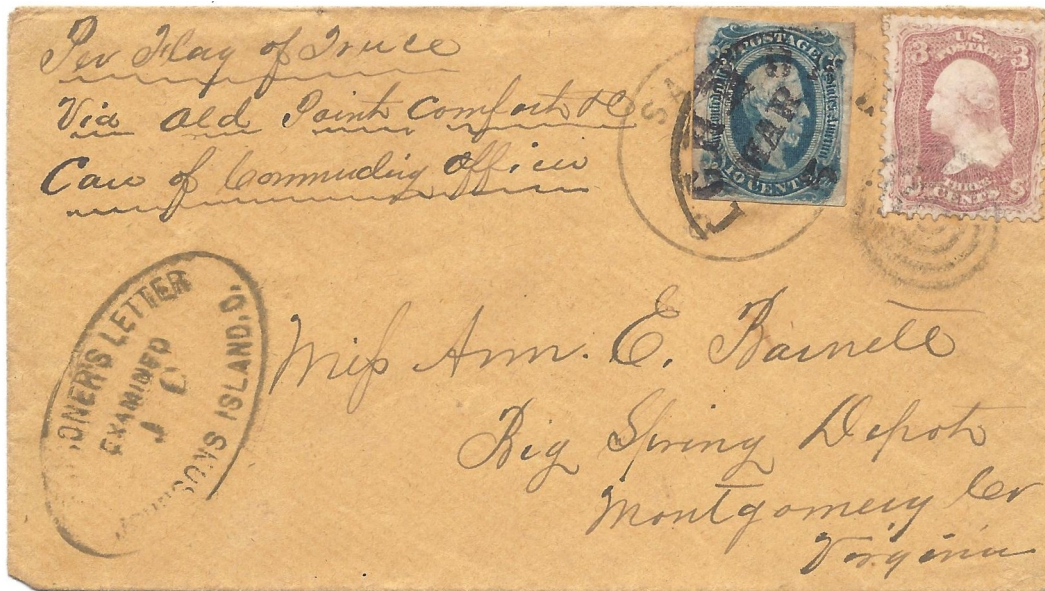 Per Flag of Truce
Via Old Point Comfort &c
Care of Commdig Officer
SA
MAR
POSTAGE
CENTS
U.S.
POSTAGE
3 3
CENTS
ONER'S LETTER
EXAMINED
J C
SONS ISLAND, O.
Miss Ann. E. Barnett
Big Spring Depot
Montgomery Co
Virginia